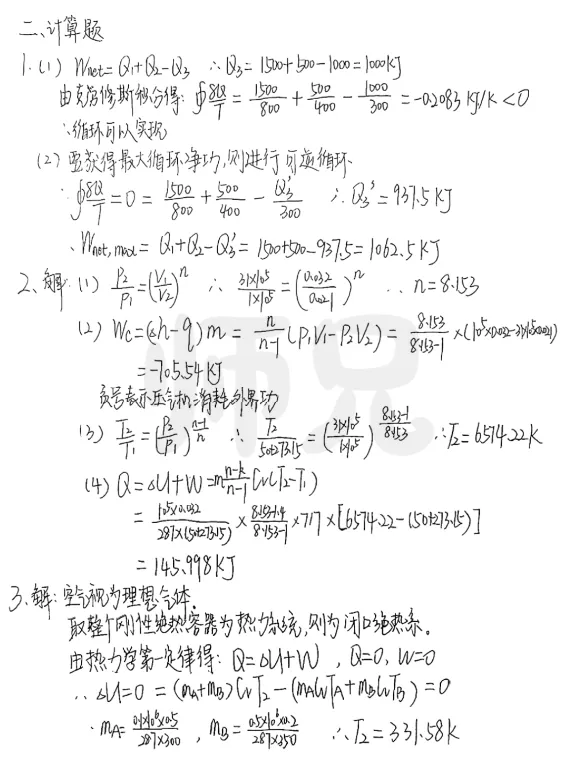 二、计算题
1. (1) Wnet = Q1+Q2-Q3 ∴Q3 = 1500+500-1000 = 1000KJ
由克劳修斯积分得: ∮δQ/T = 1500/800 + 500/400 - 1000/300 = -0.2083 KJ/K < 0
∴循环可以实现
(2) 要获得最大循环净功,则进行可逆循环
∵∮δQ/T = 0 = 1500/800 + 500/400 - Q3'/300 ∴Q3' = 937.5 KJ
∴Wnet,max = Q1+Q2-Q3' = 1500+500-937.5 = 1062.5 KJ
2、解: (1) P2/P1 = (V1/V2)^n ∴ 31×10^5/1×10^5 = (0.032/0.021)^n ∴ n = 8.153
(2) Wc = (Δh-q)m = n/(n-1) (P1V1-P2V2) = 8.153/(8.153-1) × (10^5×0.032-31×10^5×0.021)
= -705.54 KJ
负号表示压气机消耗外界功
(3) T2/T1 = (P2/P1)^((n-1)/n) ∴ T2/(50+273.15) = (31×10^5/1×10^5)^((8.153-1)/8.153) ∴T2 = 6574.22K
(4) Q = ΔU+W = m (n-k)/(n-1) Cv(T2-T1)
= 10^5×0.032/(287×(50+273.15)) × (8.153-1.4)/(8.153-1) × 717 × [6574.22-(50+273.15)]
= 145.998KJ
3、解: 空气视为理想气体.
取整个刚性绝热容器为热力系统,则为闭口绝热系。
由热力学第一定律得: Q=ΔU+W , Q=0, W=0
∴ ΔU=0 = (mA+mB)CvT2-(mACvTA+mBCvTB) = 0
∴ mA = 0.1×10^6×0.5/(287×300) , mB = 0.5×10^6×0.2/(287×350) ∴T2 = 331.58K
师兄